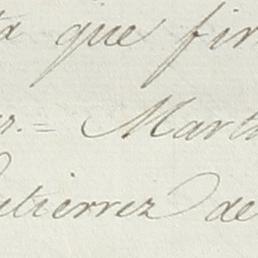 ta que fir
or.= Mart
utierrez de